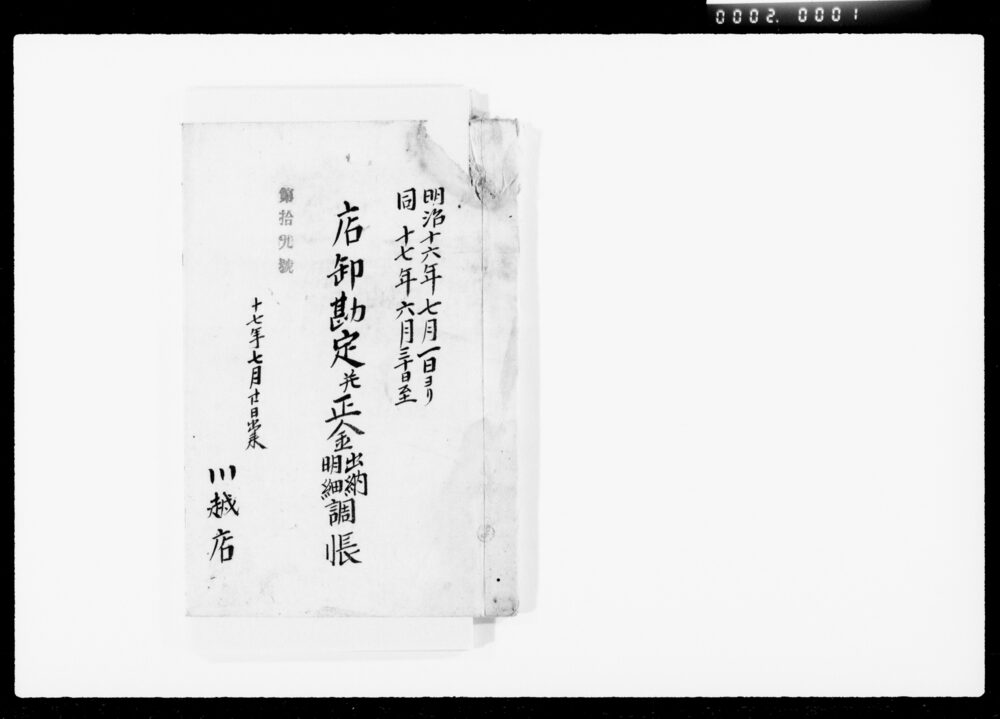 0002. 0001
明治十六年七月一日ヨリ
同 十七年六月三十日至
店卸勘定并正金出納明細調帳
第拾九號
十七年七月廿日出来
川越店